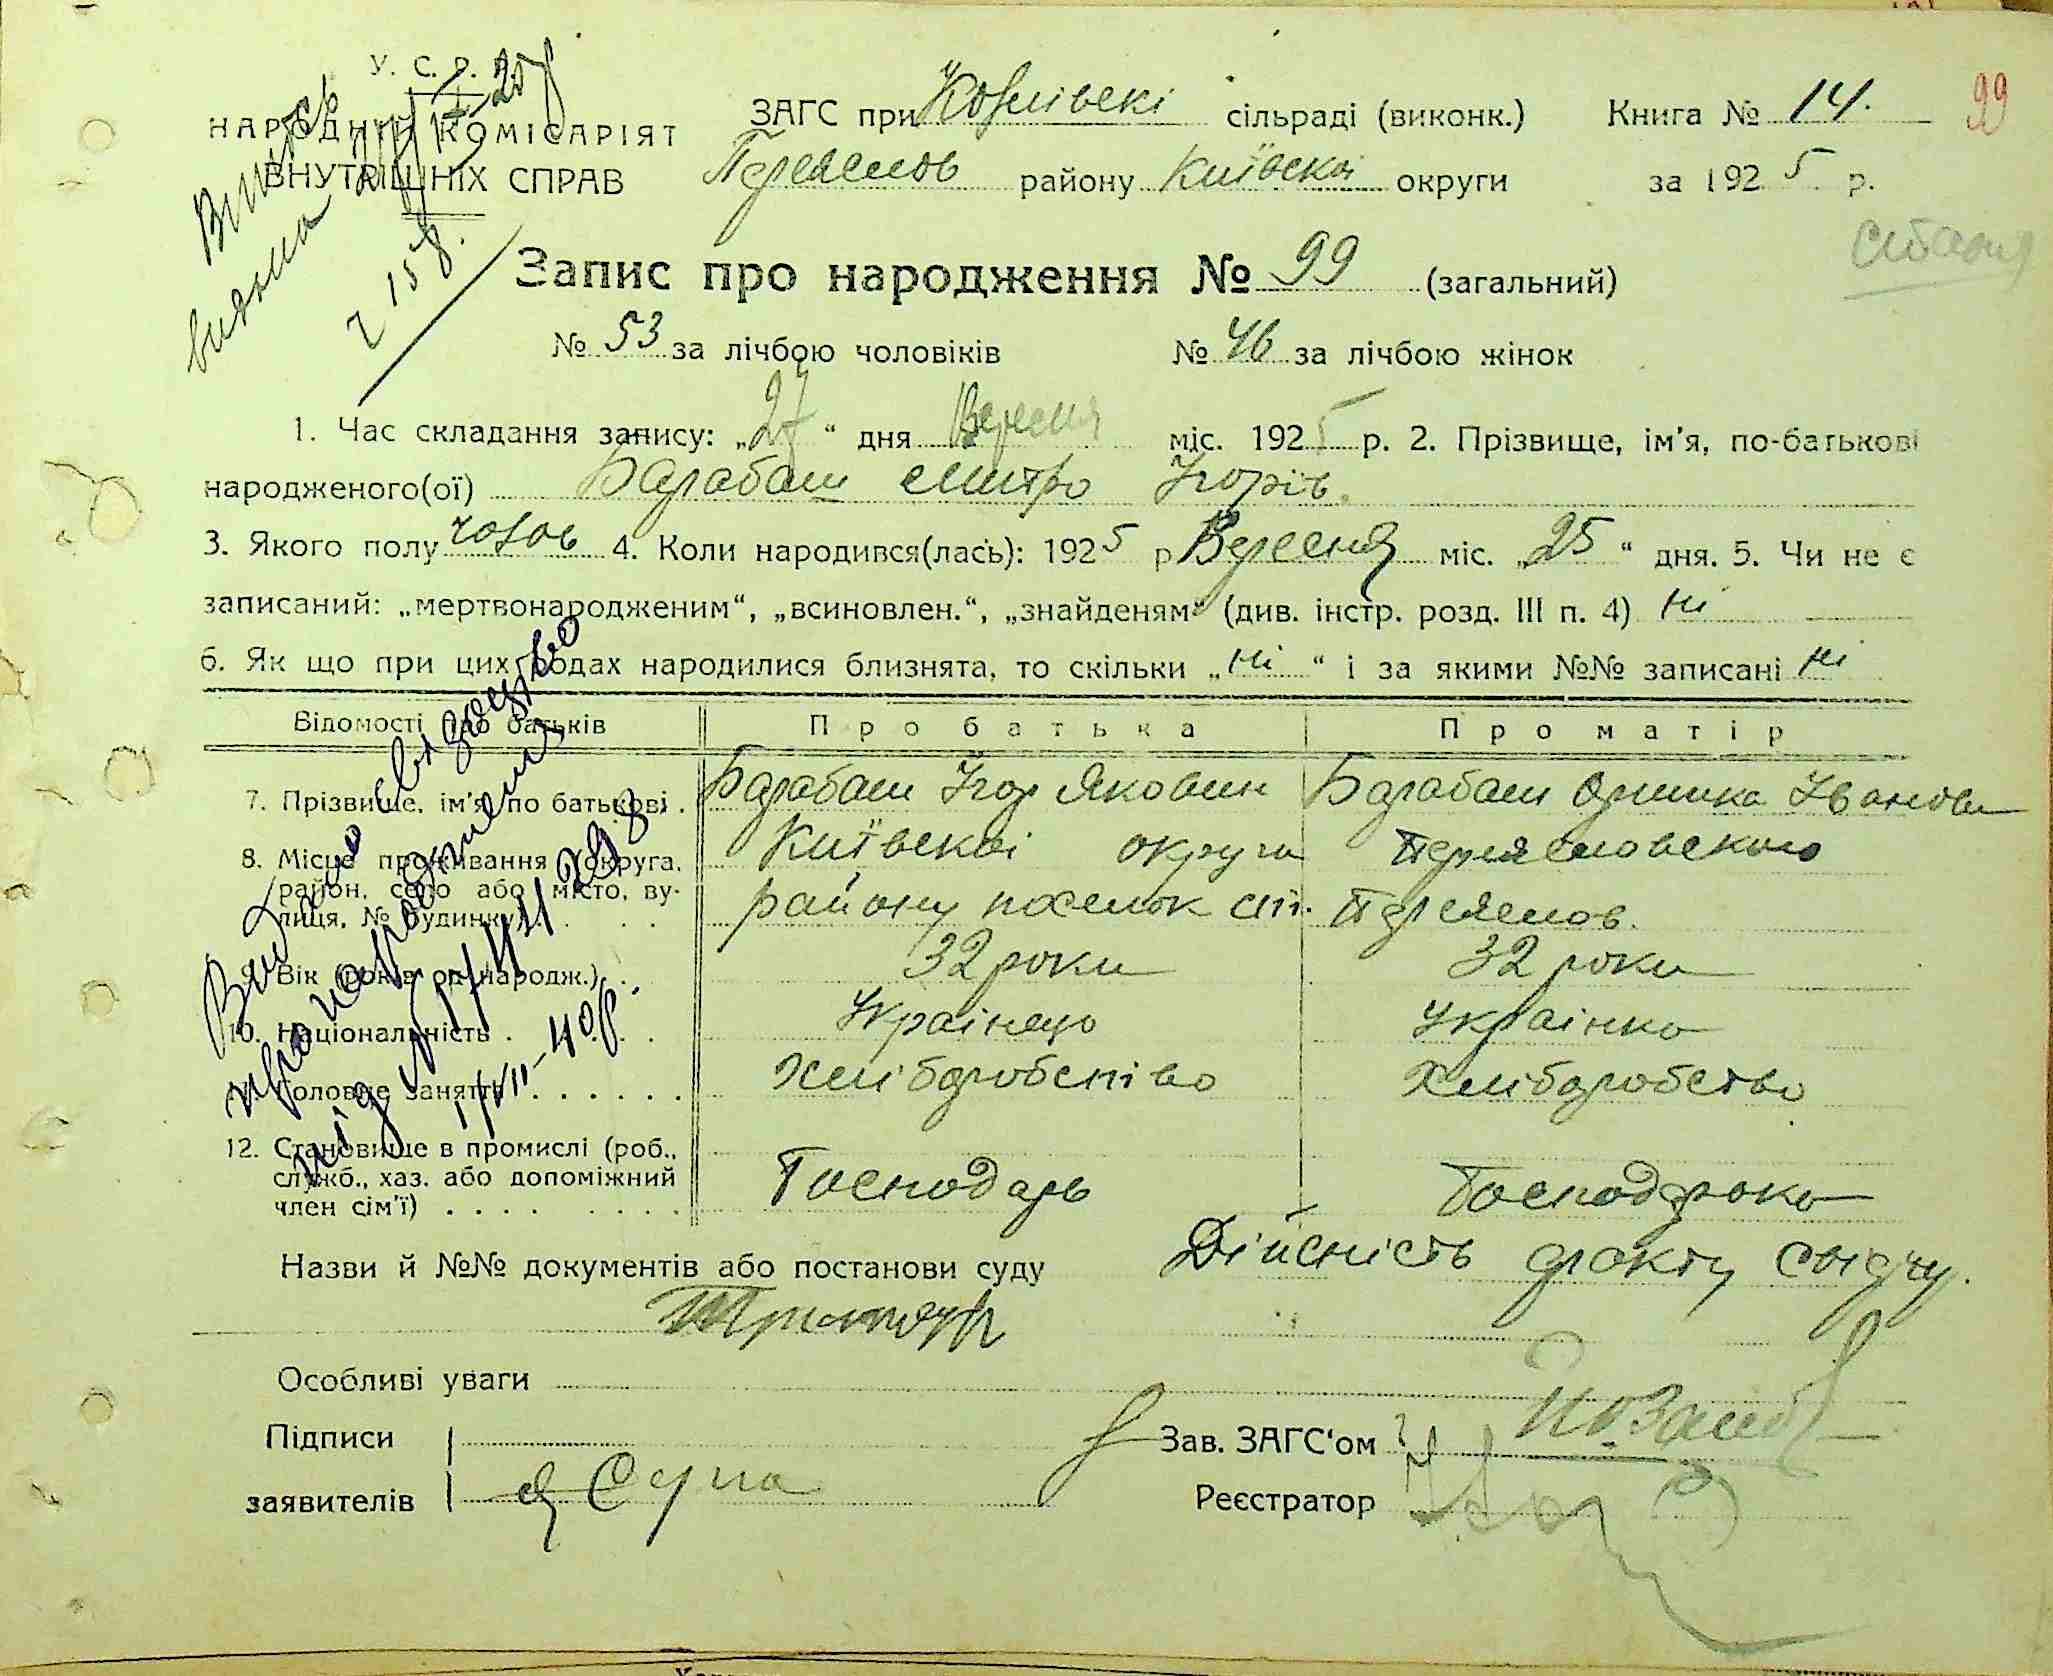 99
У. С. Р. Р.
НАРОДНІЙ КОМІСАРІЯТ
ВНУТРІШНІХ СПРАВ
ЗАГС при Козлівскі сільраді (виконк.) Книга № 14.
Переяслов району Київскої округи за 1925 р.
Запис про народження № 99 (загальний)
№ 53 за лічбою чоловіків № 46 за лічбою жінок
1. Час складання запису: „27“ дня Вересня міс. 1925 р. 2. Прізвище, ім'я, по-батькові
народженого(ої) Барабаш Митро Ігорів.
3. Якого полу чолов 4. Коли народився(лась): 1925 р Вересня міс. „25“ дня. 5. Чи не є
записаний: „мертвонародженим“, „всиновлен.“, „знайденям“ (див. інстр. розд. III п. 4) ні
6. Як що при цих родах народилися близнята, то скільки „ні“ і за якими №№ записані ні
Відомості про батьків Про батька Про матір
7. Прізвище, ім'я, по батькові . Барабаш Ігор Якович Барабаш Оришка Іванов
8. Місце проживання (округа, Київскої округи Переясловського
район, село або місто, ву-
лиця, № будинку) . . . району поселок ст. Переяслов.
9. Вік (років од народж.) . . 32 роки 32 роки
10. Національність . . . . Украінець Украінка
11. Головне заняття . . . . . . Хліборобство Хліборобство
12. Становище в промислі (роб.,
служб., хаз. або допоміжний
член сім'ї) . . . . Господарь Господарка
Назви й №№ документів або постанови суду Дійсність факту свідчу.
Особливі уваги
Підписи
заявителів
Зав. ЗАГС'ом
Реєстратор
Видано свідоцтво
про народження
під № 1/VII-40р.
Випись
видана